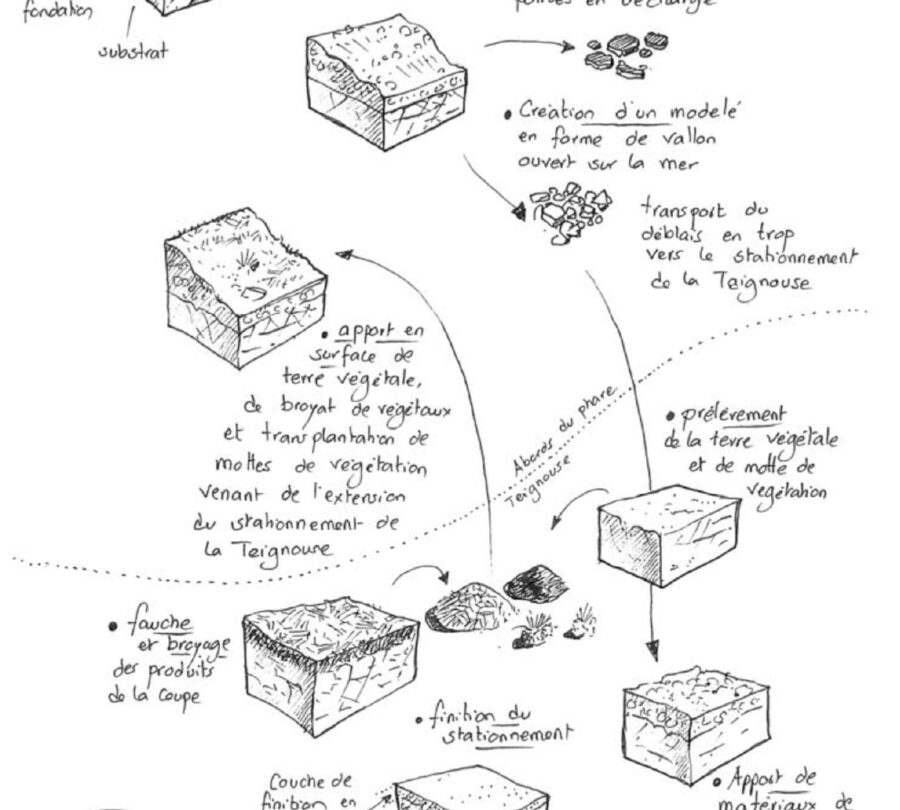 fondation
substrat
en décharge
• Création d'un modelé
en forme de vallon
ouvert sur la mer
transport du
déblais en trop
vers le stationnement
de la Teignouse
• apport en
surface de
terre végétale,
de broyat de végétaux
et transplantation de
mottes de végétation
venant de l'extension
du stationnement de
la Teignouse
Abords du phare
Teignouse
• prélèvement
de la terre végétale
et de motte de
végétation
• fauche
et broyage
des produits
de la coupe
• finition du
stationnement
Couche de
finition en
• Apport de
matériaux de